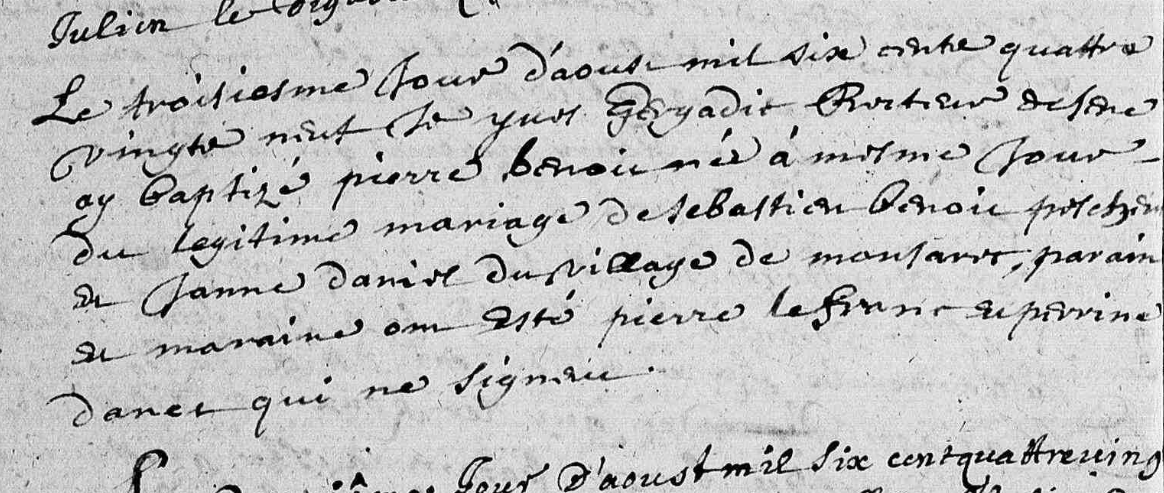 Julien le
Le troisiesme Jour d'aoust mil six cente quattre
vingte neuf Je yves Gergadic Recteur de sene
ay baptizé pierre benoit né à mesme Jour
du legitime mariage de sebastien benoit pescheur
et Janne daniel du village de monsarec, parain
et maraine ont esté pierre le franc et perrine
danet qui ne signent.
Jour D'aoust mil six cent quattre ving